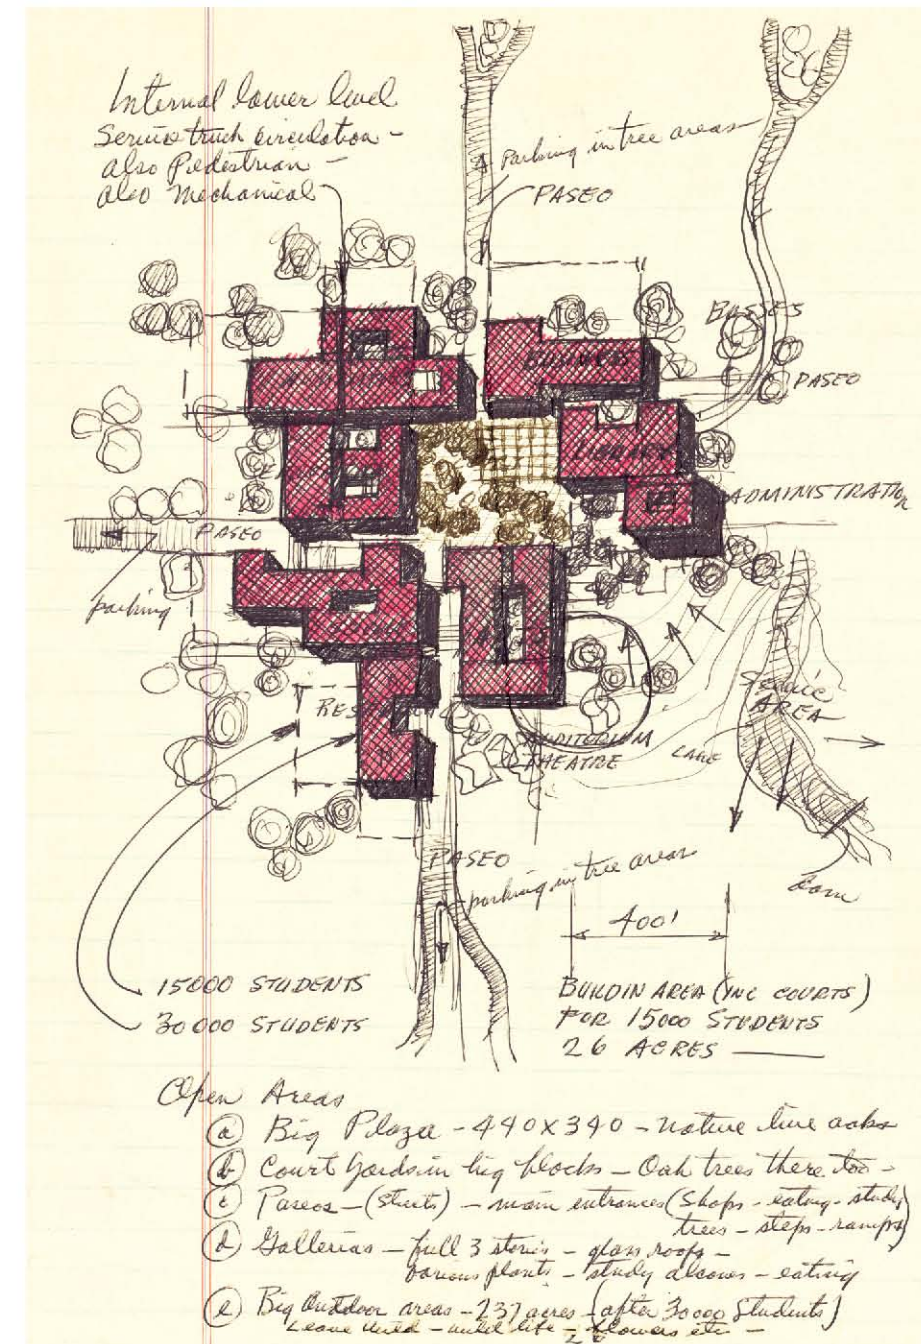 Internal lower level
Service truck circulation -
also Pedestrian -
also Mechanical
Parking in tree areas
PASEO
BUSSES
PASEO
BUSINESS
LIBRARY
ADMINISTRATION
PASEO
parking
AUDITORIUM
THEATRE
LAKE
SERVIC
AREA
dam
PASEO
parking in tree areas
400'
15000 STUDENTS
30000 STUDENTS
BUILDIN AREA (INC COURTS)
FOR 15000 STUDENTS
26 ACRES
Open Areas
(a) Big Plaza - 440x340 - native live oaks
(b) Court Yards in big blocks - Oak trees there too -
(c) Paseos - (streets) - main entrances (Shops - eating - study
trees - steps - ramps)
(d) Gallerias - full 3 stories - glass roofs -
various plants - study alcoves - eating
(e) Big Outdoor areas - 237 acres - (after 30000 Students)
Leave wild - wild life - flowers etc -